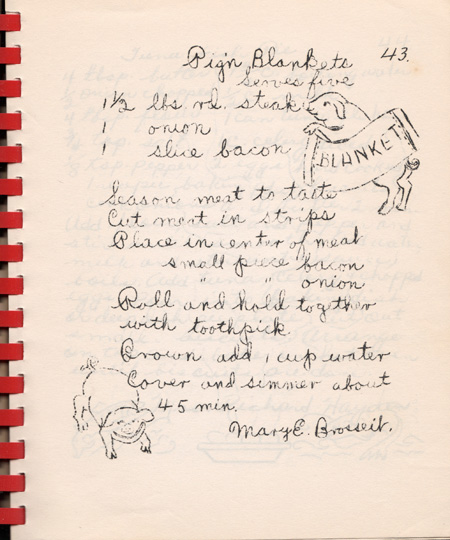 43.
Pign Blankets
Serves five
1½ lbs rd. steak
1 onion
1 slice bacon
BLANKET
Season meat to taste
Cut meat in strips
Place in center of meat
small piece bacon
" " onion
Roll and hold together
with toothpick.
Brown add 1 cup water
Cover and simmer about
45 min.
Mary E. Brosseit.